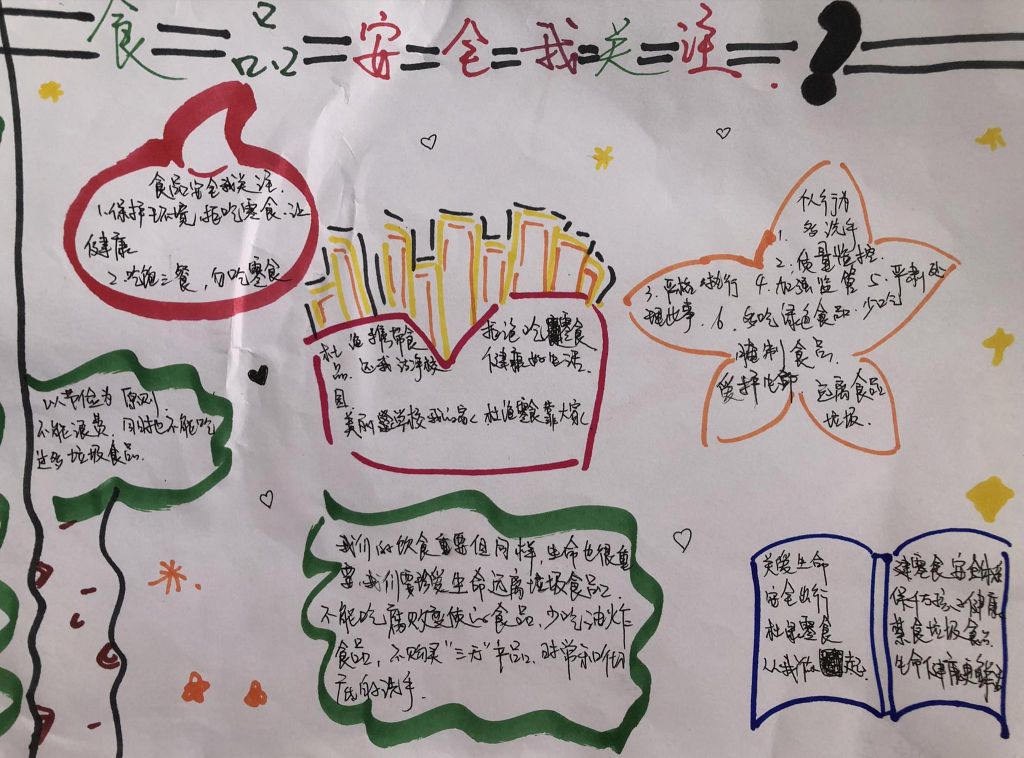 食品安全我关注?
食品安全我关注.
1.保护环境,拒吃零食.让
健康
2.吃饱三餐,勿吃零食
以节俭为原则.
不能浪费.同时也不能吃
这些垃圾食品.
杜绝携带食
品.还我洁净校
园
拒绝吃零食
健康的生活.
美丽 学校 杜绝零食靠大家
从行为
1.多洗手
2.质量监控.
3.严格 执行 4.加强监管 5.严肃处
理此事.6.多吃绿色食品.少吃
腌制食品.
远离食品
垃圾.
我们的饮食重要但同样,生命也很重
要.我们要珍爱生命远离垃圾食品.
不能吃腐败变质的食品,少吃油炸
食品,不购买"三无"产品.时常
洗手.
关爱生命
安全出行
杜绝零食
从我做起.
建零食安全体系
保千万孩子健康
禁食垃圾食品.
生命健康更鲜活